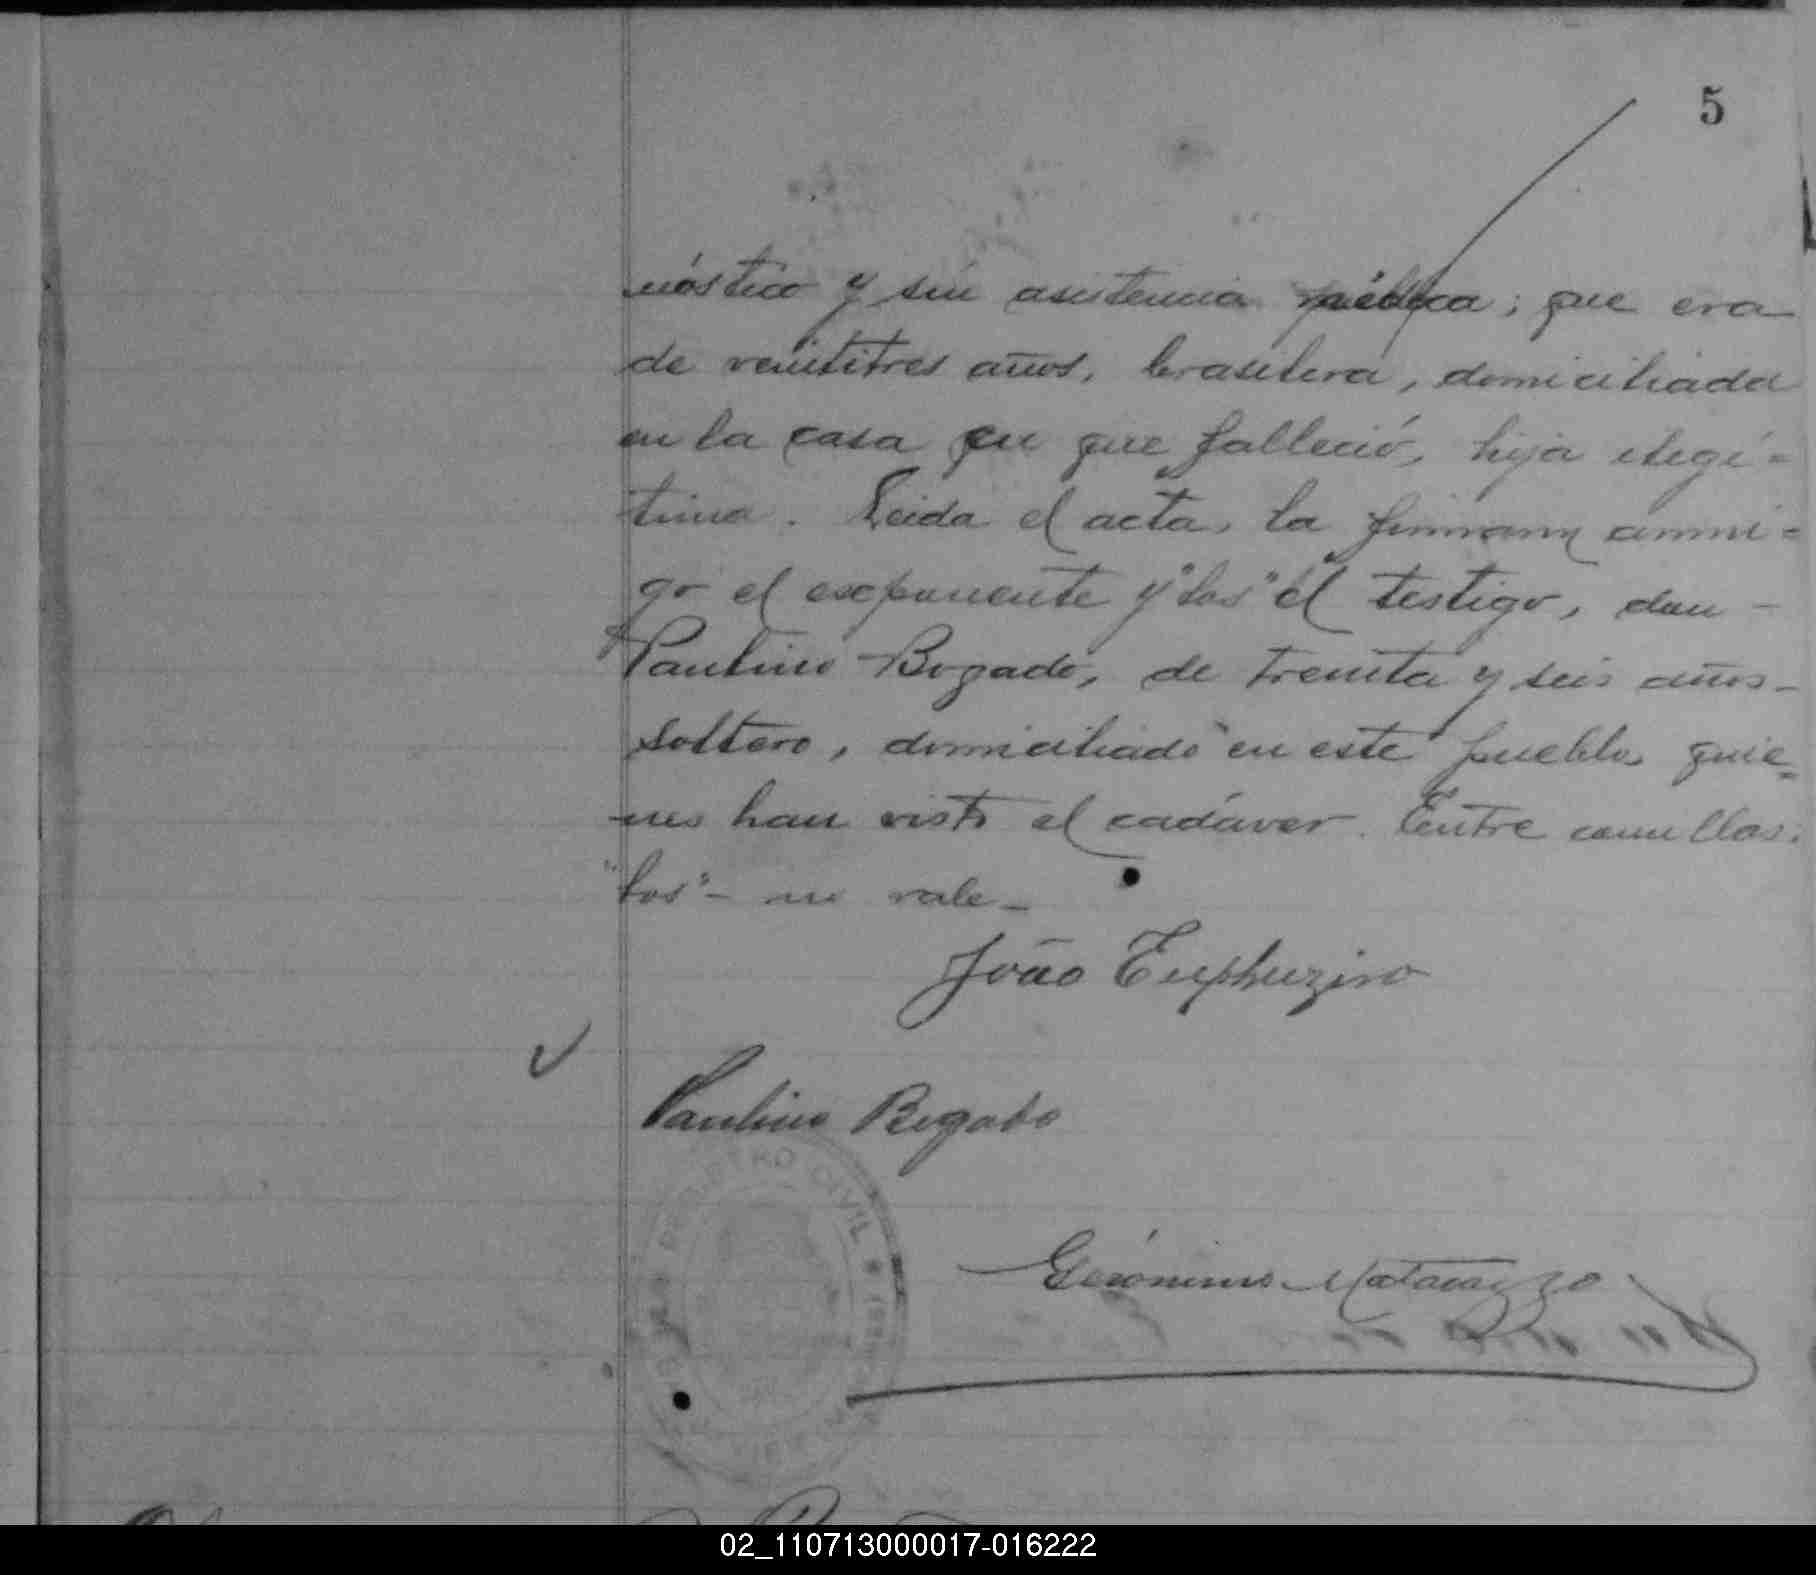 5
nóstico y sin asistencia médica; que era
de veintitres años, brasilera, domiciliada
en la casa en que falleció, hija ilegí=
tima. Leida el acta, la firmaron conmi=
go el exponente y "los" el testigo, don -
Paulino Bogado, de treinta y seis años -
soltero, domiciliado en este pueblo, quie=
nes han visto el cadáver. Entre comillas:
"los" - no vale -
João
Paulino Bogado
REGISTRO CIVIL
Gerónimo Matarazzo
02_110713000017-016222